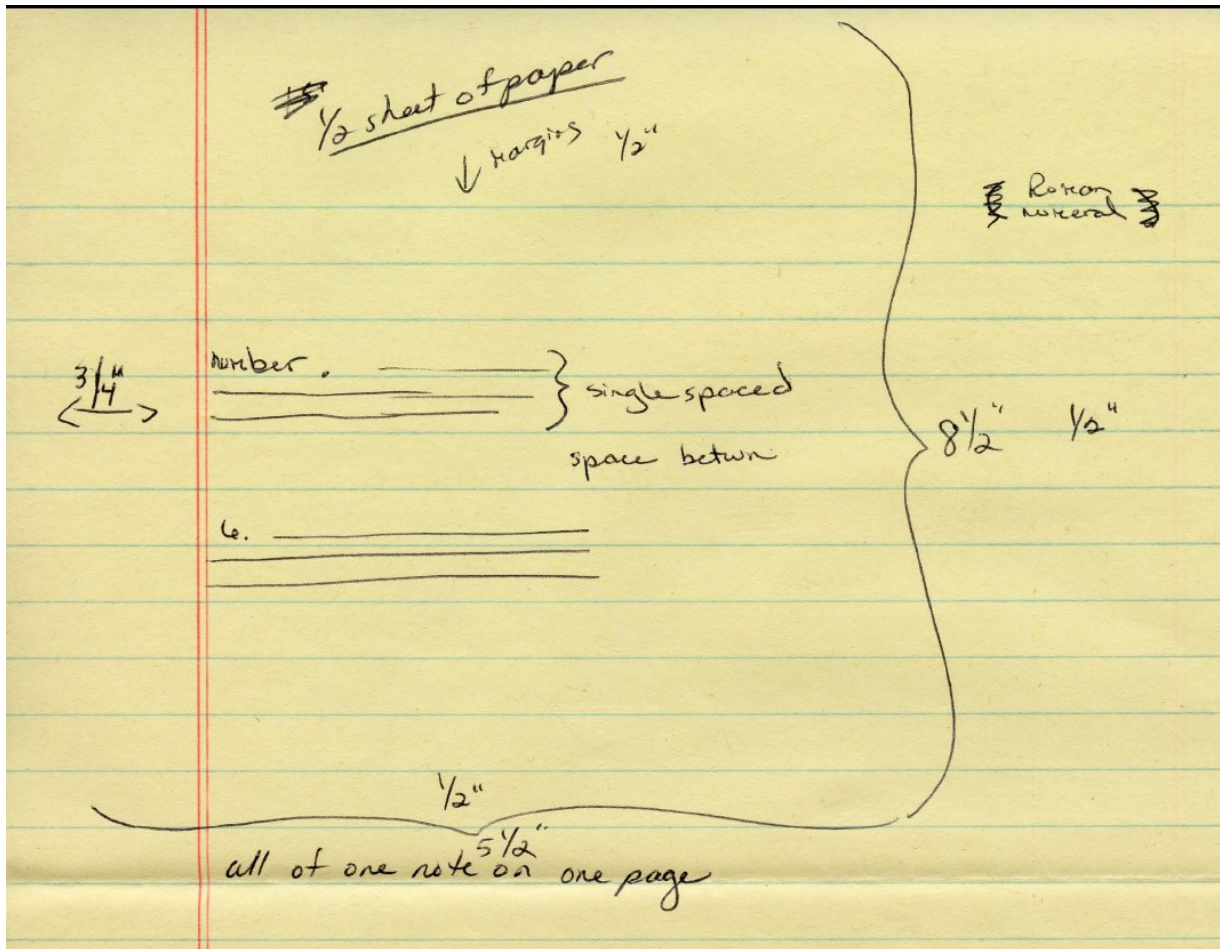 1/2 sheet of paper
↓ Margins 1/2"
Roman
numeral
3/4"
number.
single spaced
space betwn
8 1/2" 1/2"
6.
1/2"
5 1/2"
all of one note on one page